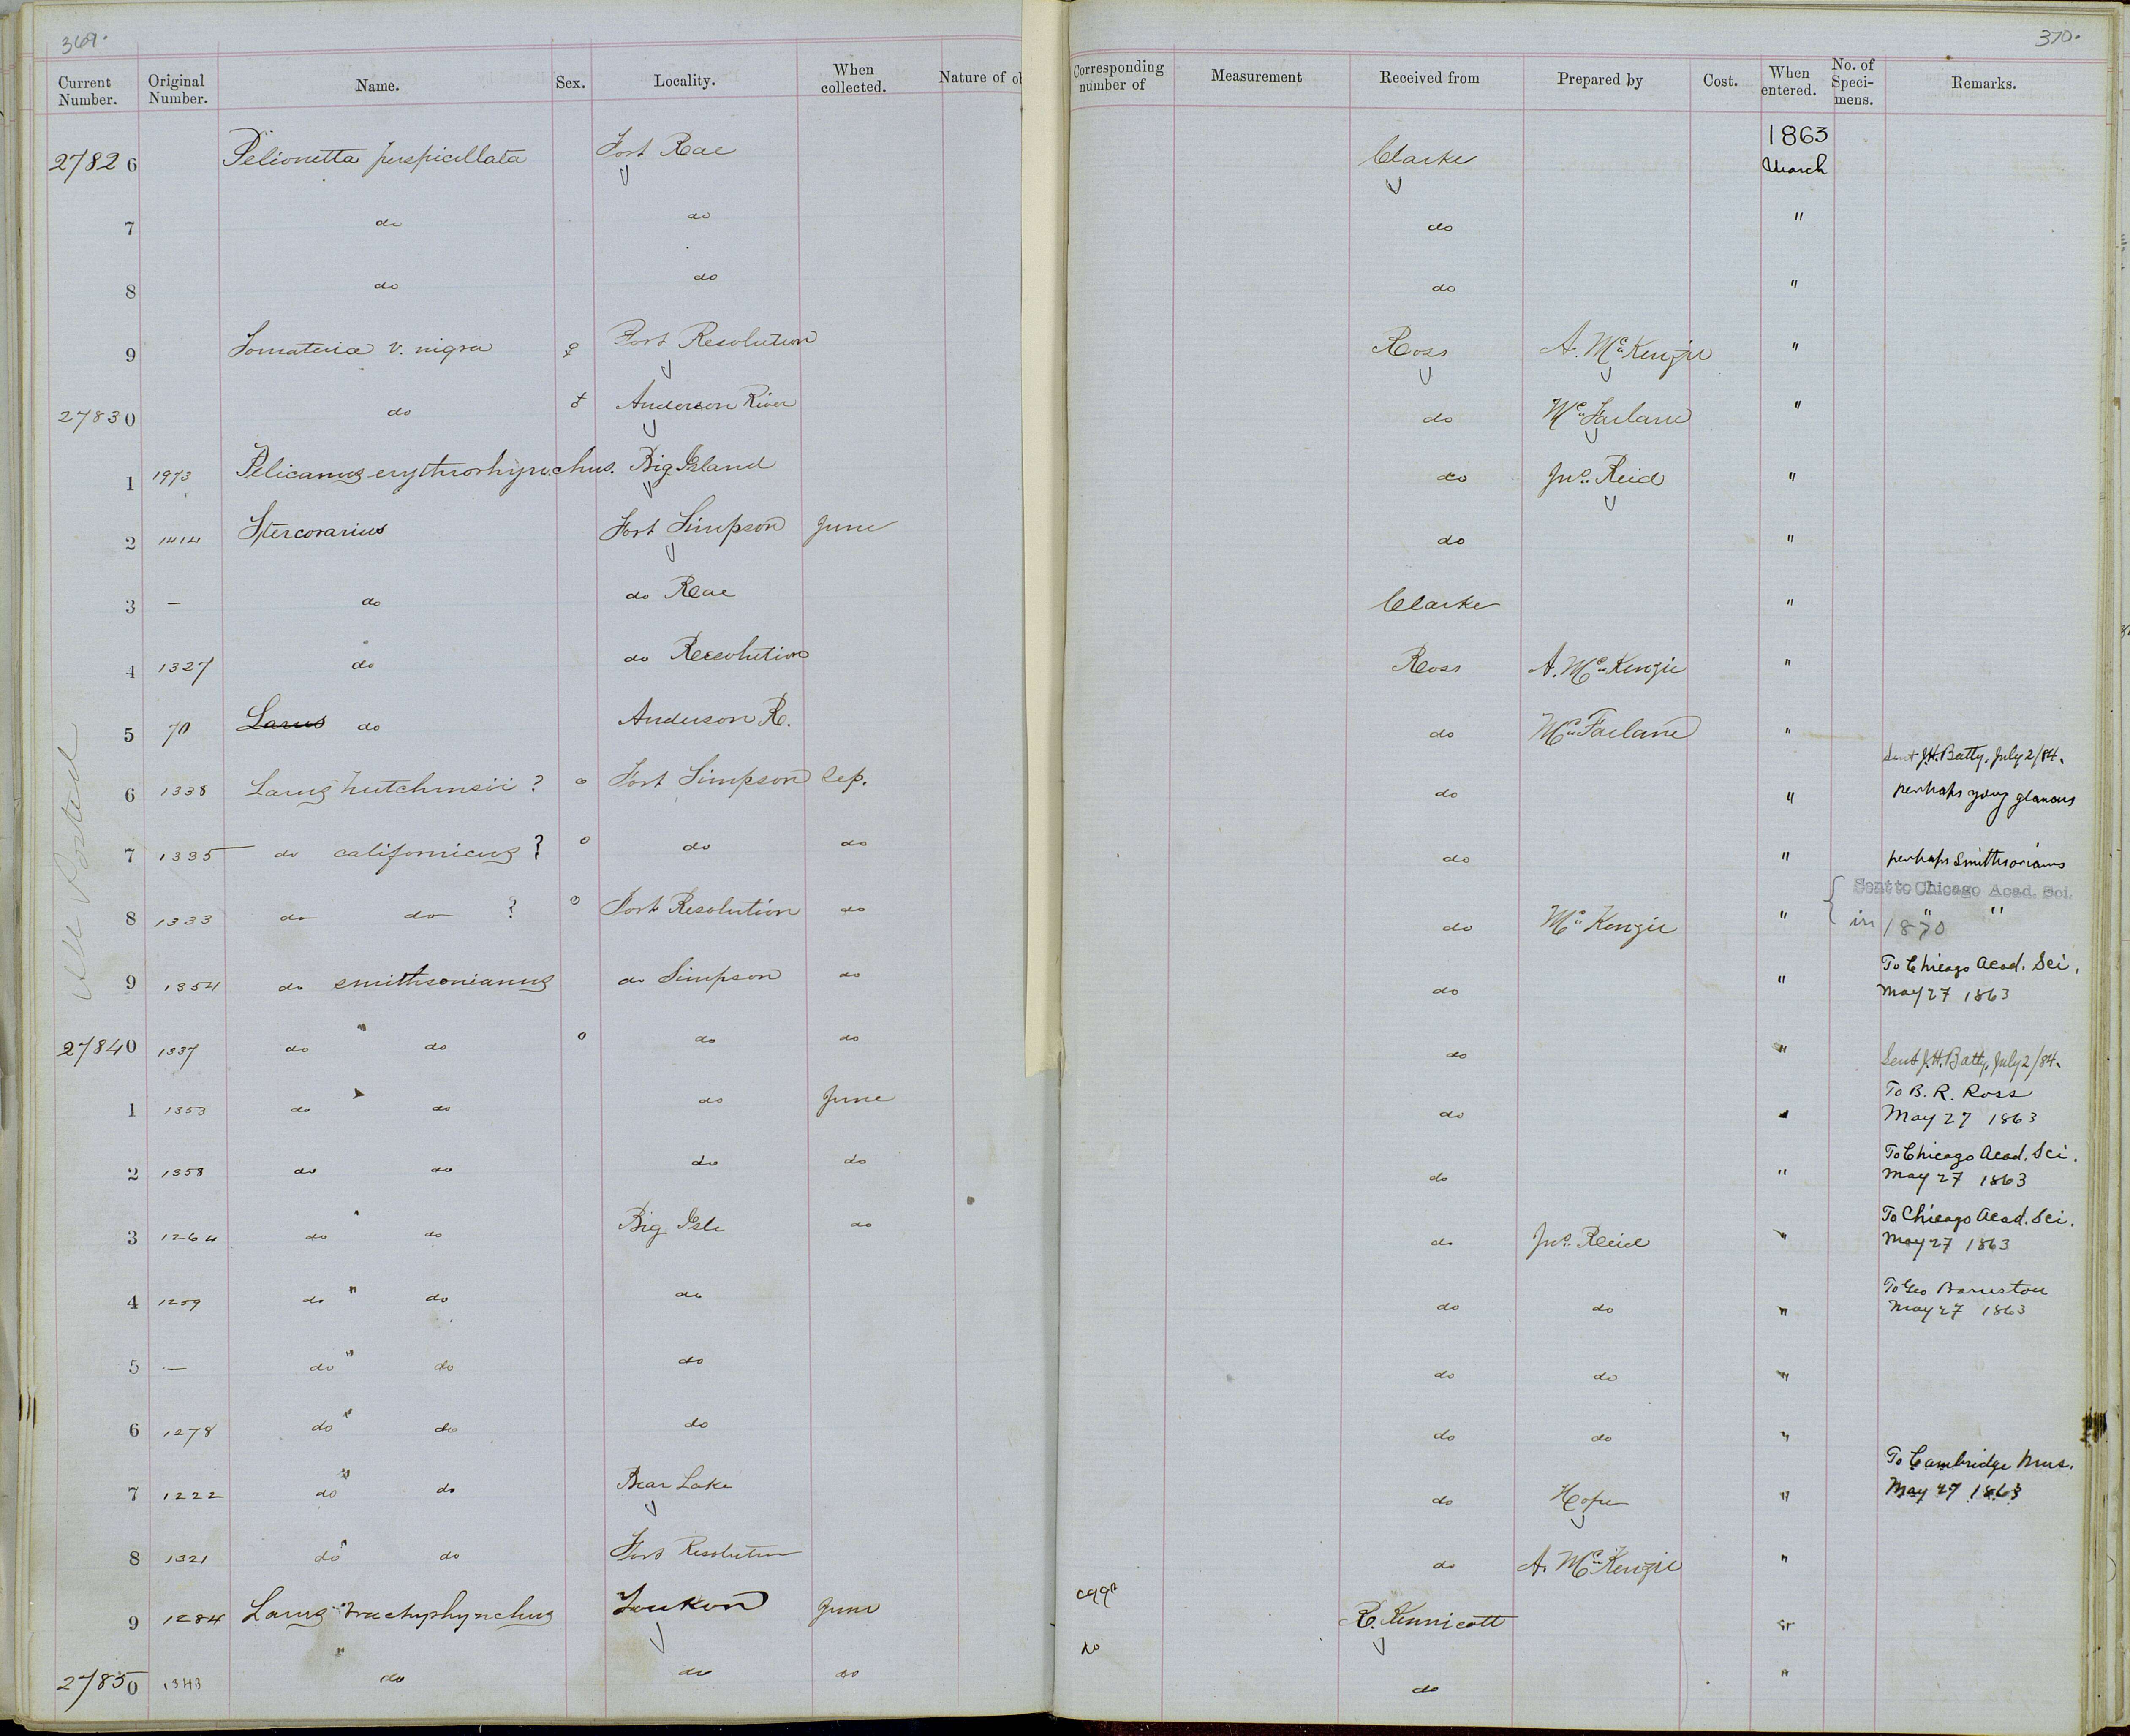 369. 370.
Current Number. Original Number. Name. Sex. Locality. When collected. Nature of Corresponding number of Measurement Received from Prepared by Cost. When entered. No. of Speci-mens. Remarks.
1863
27826 Pelionetta perspicillata Fort Rae Clarke March
7 do do do "
8 do do do "
9 Somateria v. nigra ♀ Fort Resolution Ross A. McKenzie "
27830 do Anderson River do McFarlane "
1 1973 Pelicanus erythrorhynchus. Big Island do Jno. Reid "
2 1414 Stercorarius Fort Simpson June do "
3 — do do Rae Clarke "
4 1327 do do Resolution Ross A. McKenzie "
5 70 Larus do Anderson R. do McFarlane "
Sent J.H. Batty, July 2/84.
6 1338 Larus hutchinsii ? o Fort Simpson Sep. do " perhaps young glaucus
7 1335 do californicus ? o do do do " perhaps Smithsonianus
Sent to Chicago Acad. Sci.
8 1333 do do ? o Fort Resolution do do McKenzie " " "
in 1870
9 1354 do smithsonianus do Simpson do do " To Chicago Acad. Sci.
May 27 1863
27840 1337 do do o do do do " Sent J.H. Batty, July 2/84.
1 1353 do do do June do " To B. R. Ross
May 27 1863
2 1358 do do do do do " To Chicago Acad. Sci.
May 27 1863
3 1264 do do Big Isle do do Jno. Reid " To Chicago Acad. Sci.
May 27 1863
4 1259 do " do do do do " To Geo Barnston
May 27 1863
5 — do " do do do do "
6 1278 do " do do do do "
7 1222 do " do Bear Lake do Hope " To Cambridge Mus.
May 27 1863
8 1321 do " do Fort Resolution do A. McKenzie "
9 1284 Larus brachyrhynchus Youkon June egg R. Kennicott "
27850 1343 " do do do do do "
All Posted